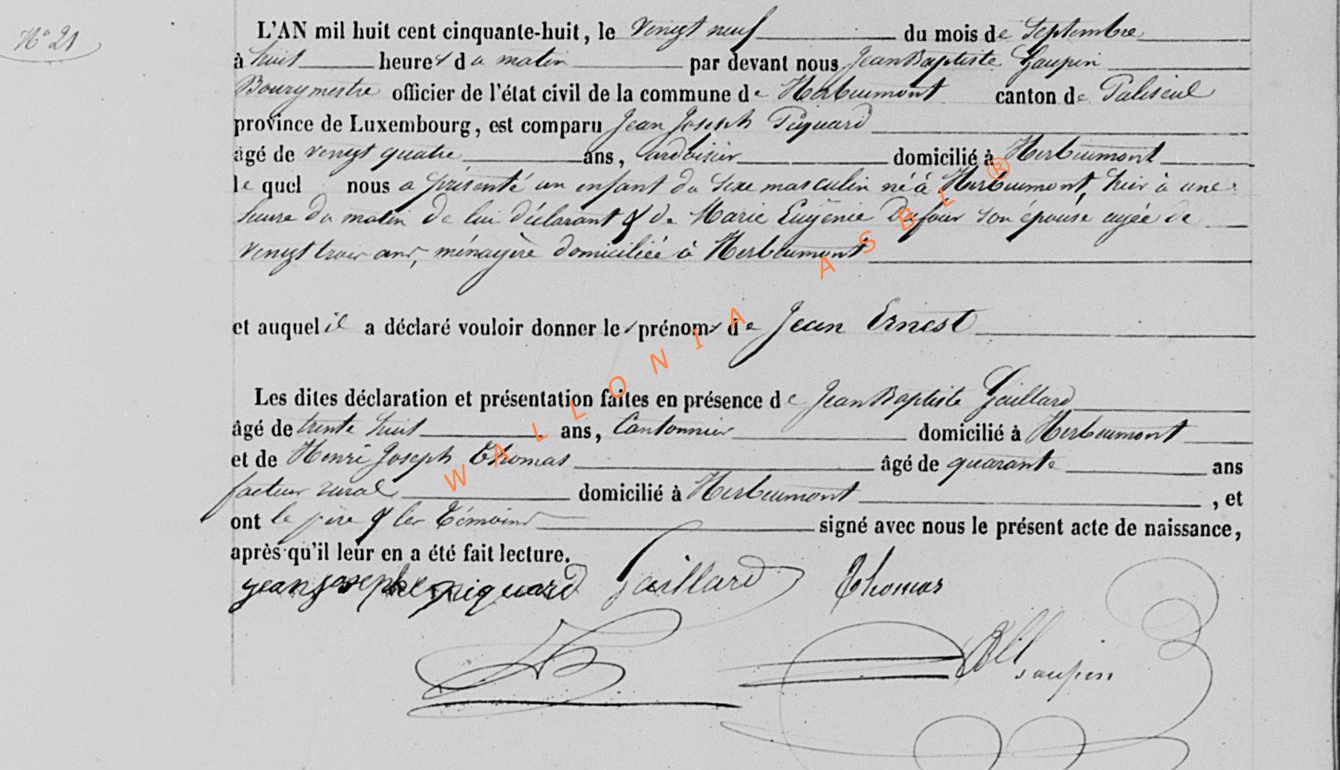 N° 21
L'AN mil huit cent cinquante-huit, le vingt neuf du mois de Septembre
à huit heures du matin par devant nous Jean Baptiste Goupin
Bourgmestre officier de l'état civil de la commune de Herbeumont canton de Paliseul
province de Luxembourg, est comparu Jean Joseph Piquard
âgé de vingt quatre ans, ardoisier domicilié à Herbeumont
lequel nous a présenté un enfant du sexe masculin né à Herbeumont, hier à une
heure du matin de lui déclarant & de Marie Eugénie Dufour son épouse agée de
vingt trois ans, ménagère domiciliée à Herbeumont
et auquel il a déclaré vouloir donner les prénoms de Jean Ernest
Les dites déclaration et présentation faites en présence de Jean Baptiste Gaillard
âgé de trente huit ans, Cantonnier domicilié à Herbeumont
et de Henri Joseph Thomas âgé de quarante ans
facteur rural domicilié à Herbeumont, et
ont le père & les témoins signé avec nous le présent acte de naissance,
après qu'il leur en a été fait lecture.
jean josephe piquard Gaillard Thomas
goupin
WALLONIA ASBL ®